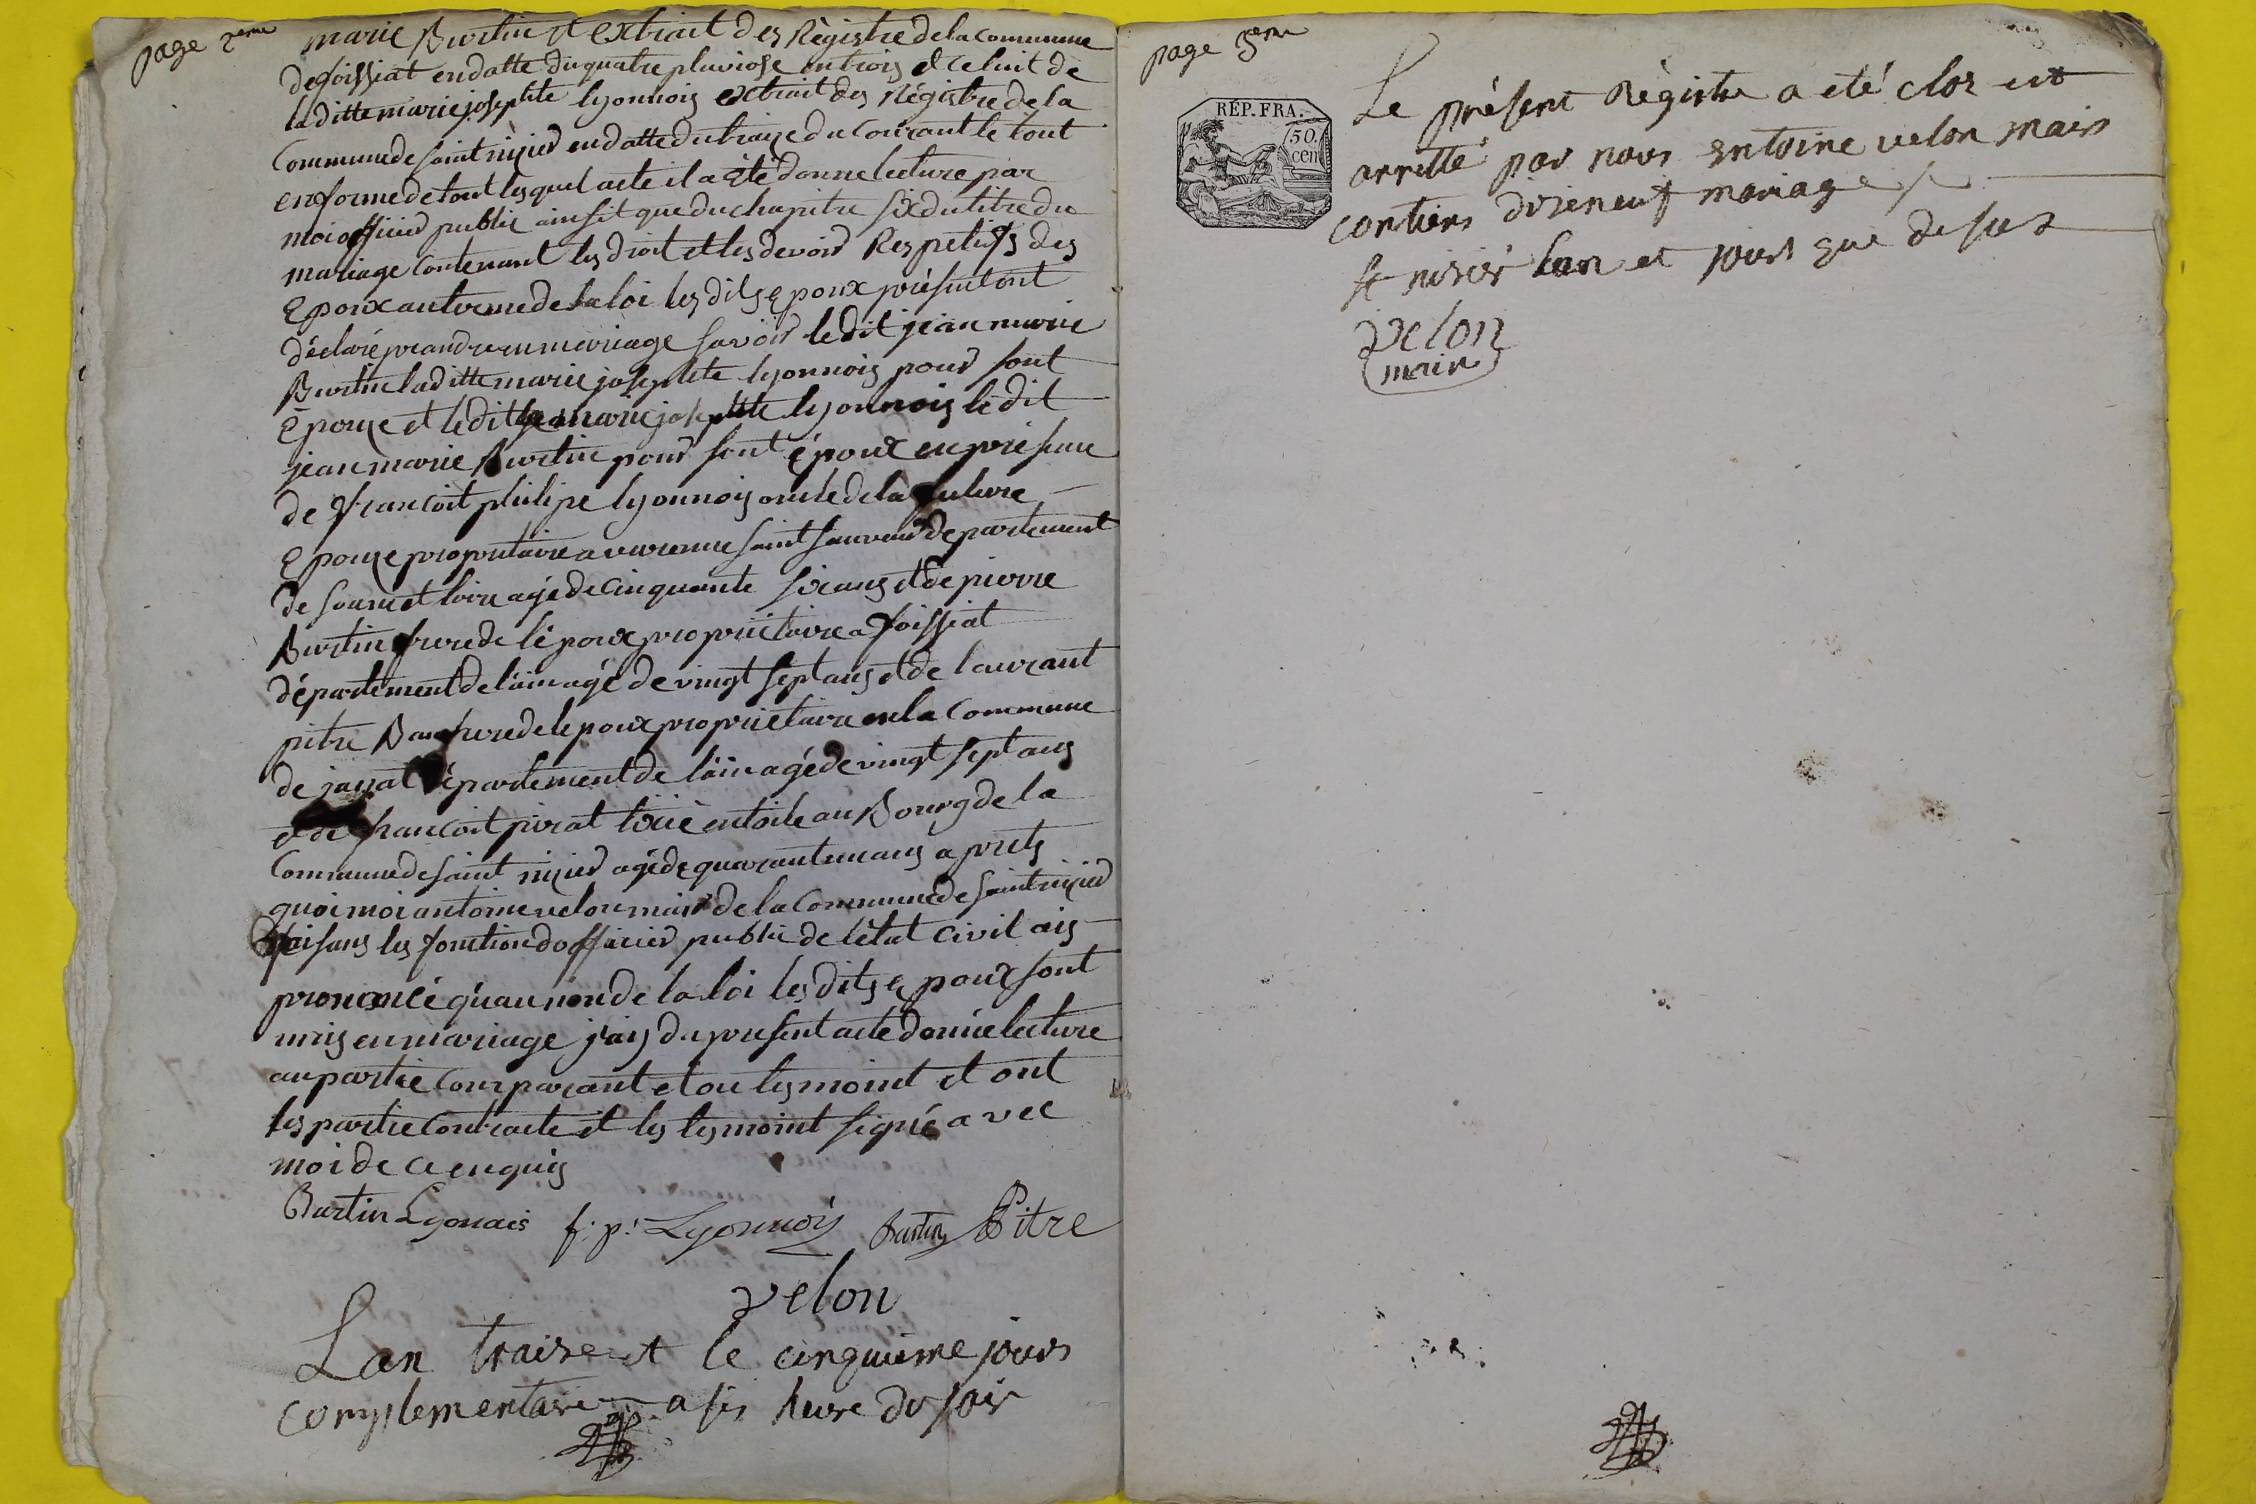 page 2eme
marie Burtin et extrait des Régistre de la Commune
de foissiat en datte du quatre pluviose en trois et celuit de
la ditte marie josephte lyonnois extrait des Régistre de la
Commune de saint nizier en datte du traize du Courant le tout
en forme de tout lesquel acte il a été donne lecture par
moi officier public ainsit que du chapitre six du titre du
mariage Contenant les droit et les devoir Respetifs des
Epoux au terme de la loi les dits epoux présent ont
déclaré prandre en mariage savoir le dit jean marie
Burtin la ditte marie josephte lyonnois pour sont
Epouze et le dit marie josephte lyonnois le dit
jean marie Burtin pour sont époux en présence
de francoit philipe lyonnois oncle de la future
Epouze propritaire a varenne saint sauveur departement
de soune et loire agé de cinquante six ans et de pierre
Burtin frere de lépoux propriétaire a foissiat
département de lain agé de vingt sept ans et de laurant
pitre Beaufrere de lepoux propriétaire en la Commune
de jayat département de lain agé de vingt sept ans
et de francoit pirat tixié en toile au Bourg de la
Commune de saint nizier agé de quarante un ans a prets
quoi moi antoine velon mair de la Commune de saint nizier
faisans les fonction dofficier public de létat civil ais
prononcé qu'au nom de la loi les dits epoux sont
unis en mariage j'ais du present acte donnée lecture
au partie Comparant et au tesmoint et ont
les partie Contracte et les tesmoint signé avec
moi de ce enquis
Burtin Lyonais f: p: Lyonnois Burtin Pitre
velon
Lan traise et le cinquieme jours
complementaire a sis heure du soir
page 3eme
RÉP. FRA.
50.
cen
Le présent Régistre a eté clos est
arretté par nous entoine velon mair
contiens diseneuf mariage
St nisier lan et jours que desus
velon
mair